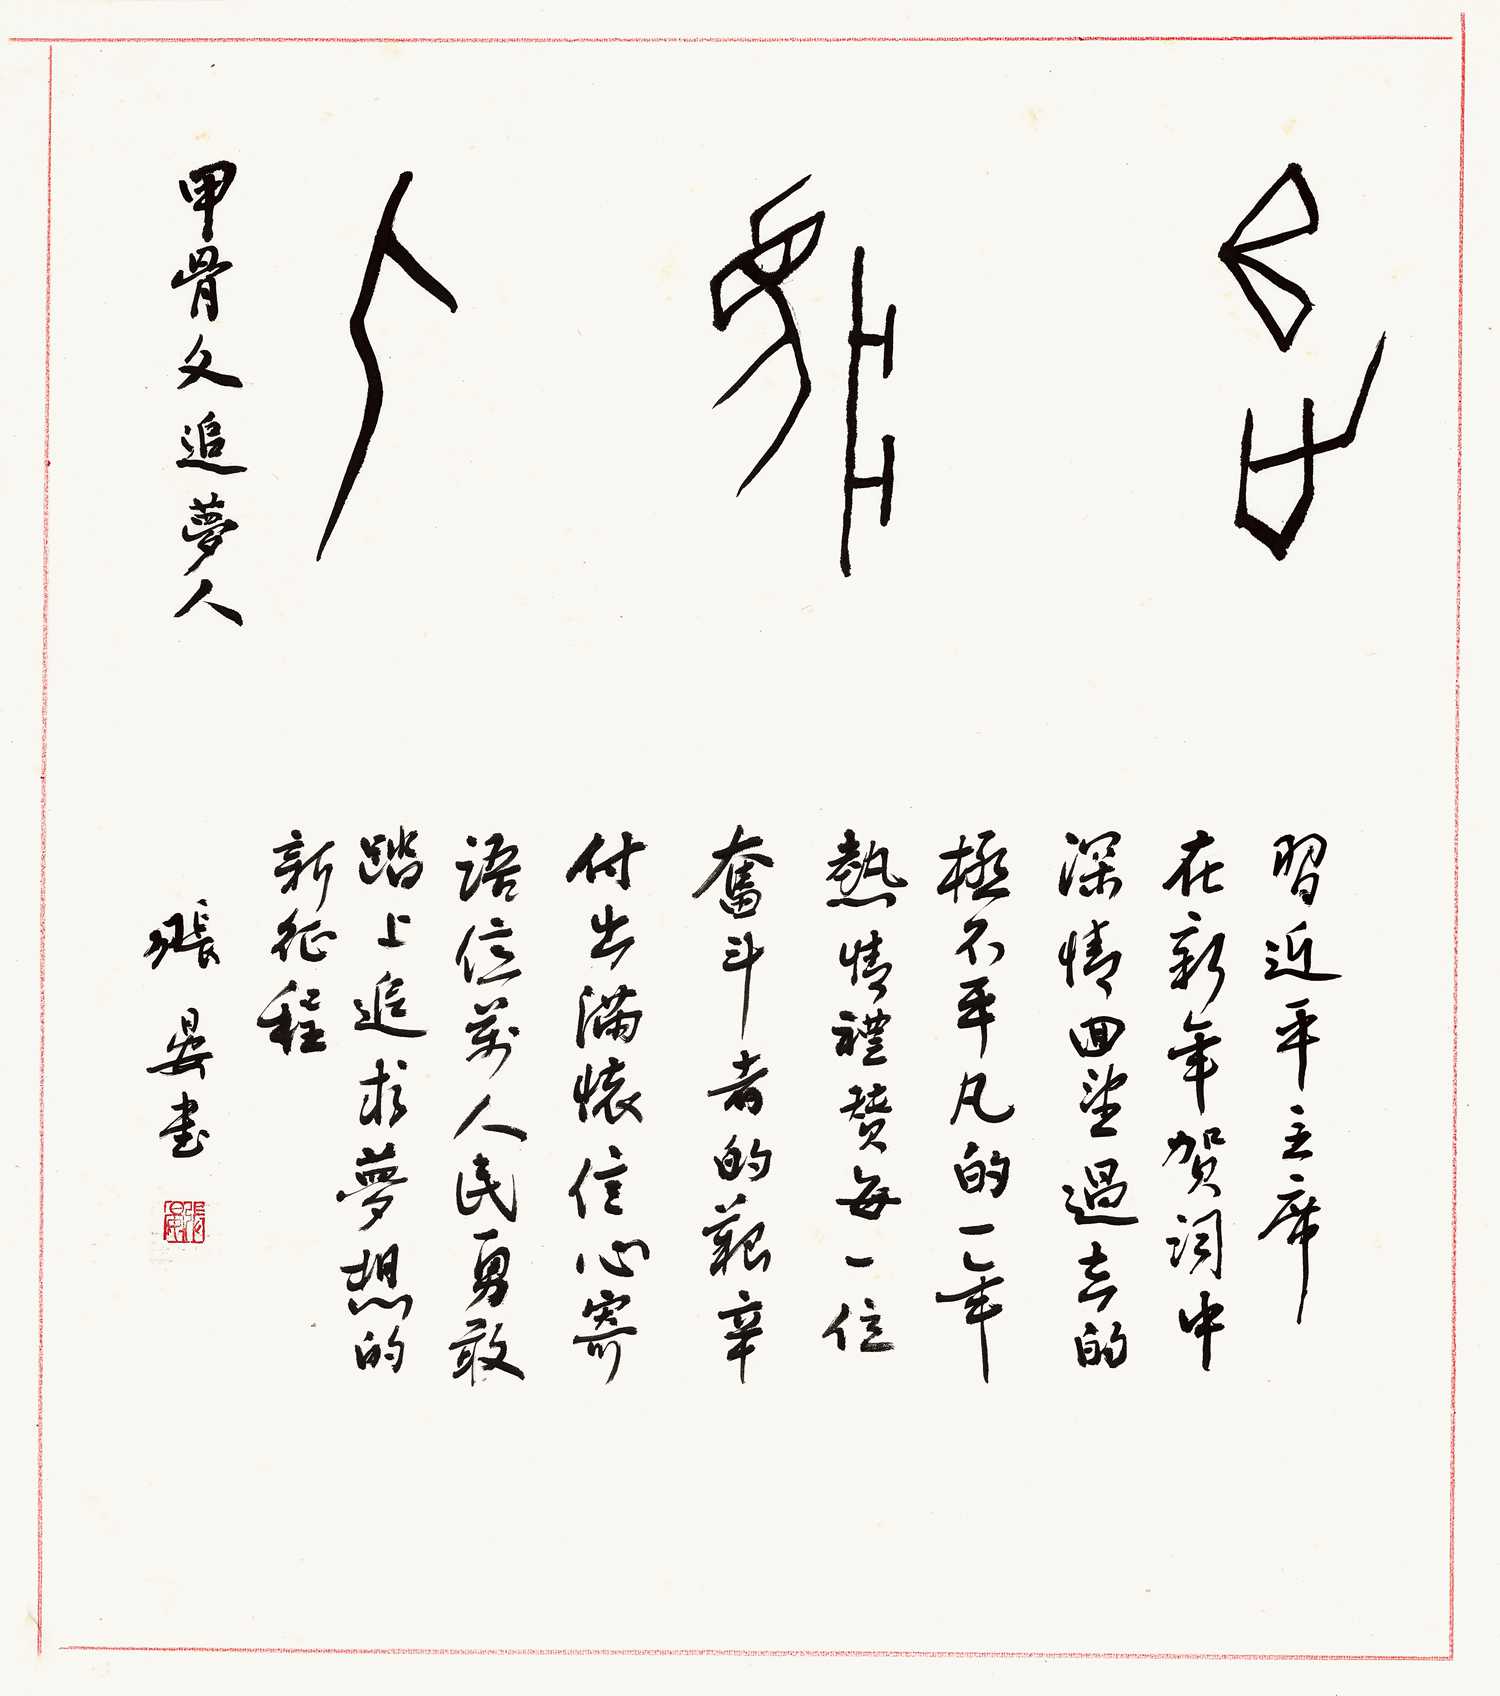 追
夢
人
甲骨文追夢人
習近平主席
在新年贺词中
深情回望過去的
極不平凡的一年
熱情禮赞每一位
奮斗者的艱辛
付出滿懷信心寄
語億萬人民勇敢
踏上追求夢想的
新征程
張晏書
張晏